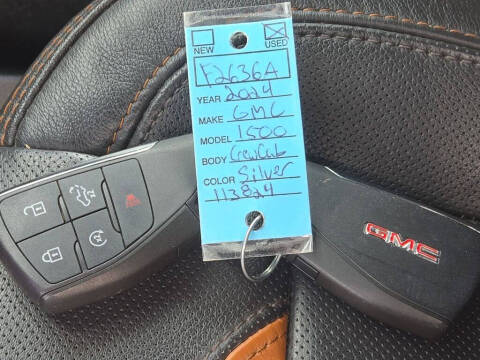 NEW USED
F2636A
YEAR 2024
MAKE GMC
MODEL 1500
BODY Crew Cab
COLOR Silver
113824
GMC